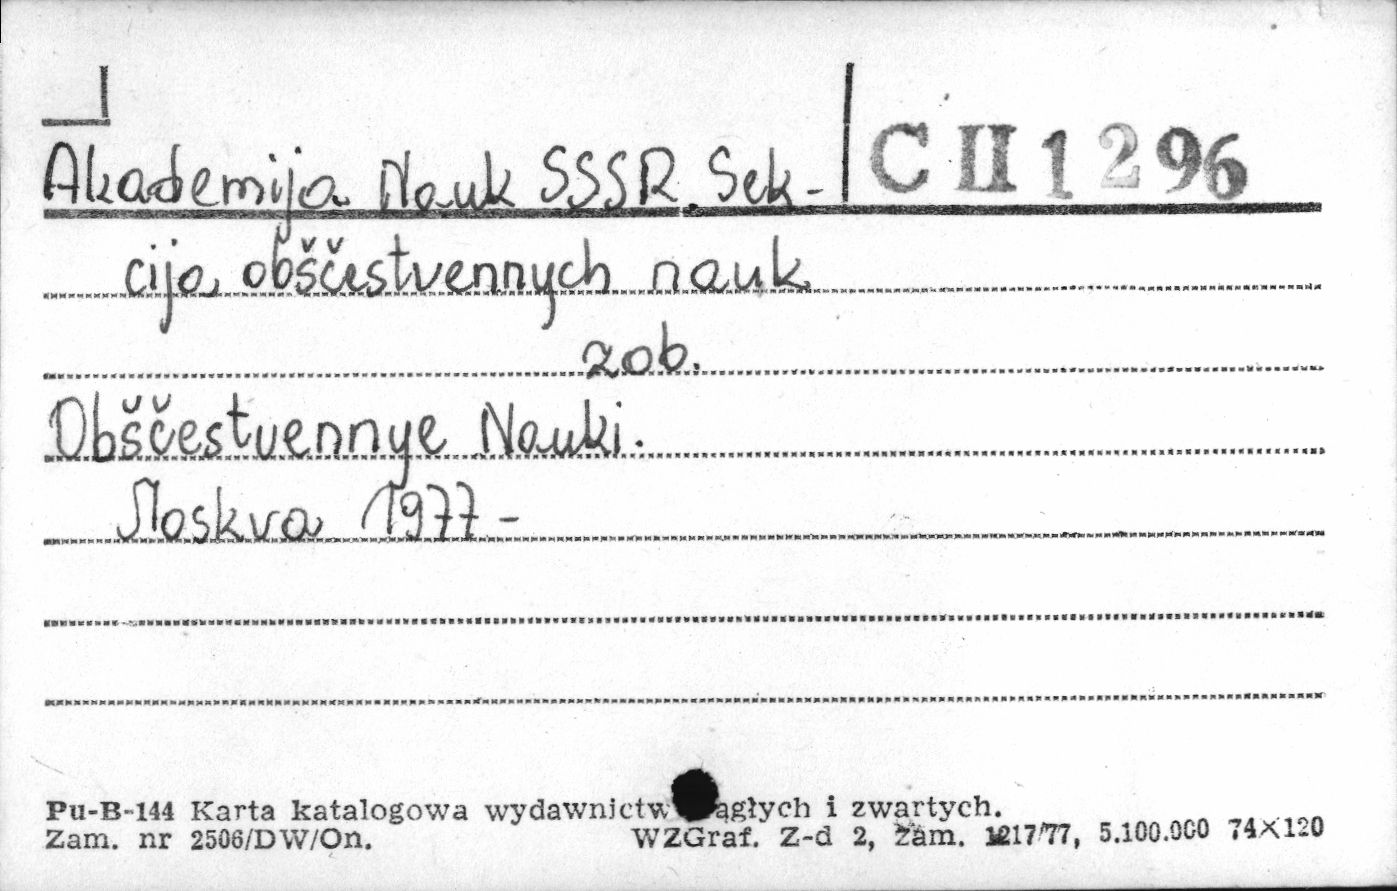 C II 1296
Akademija Nauk SSSR. Sek-
cija obščestvennych nauk
zob.
Obščestvennye Nauki.
Moskva 1977-
Pu-B-144 Karta katalogowa wydawnictw ągłych i zwartych.
Zam. nr 2506/DW/On. WZGraf. Z-d 2, zam. 1217/77, 5.100.000 74×120